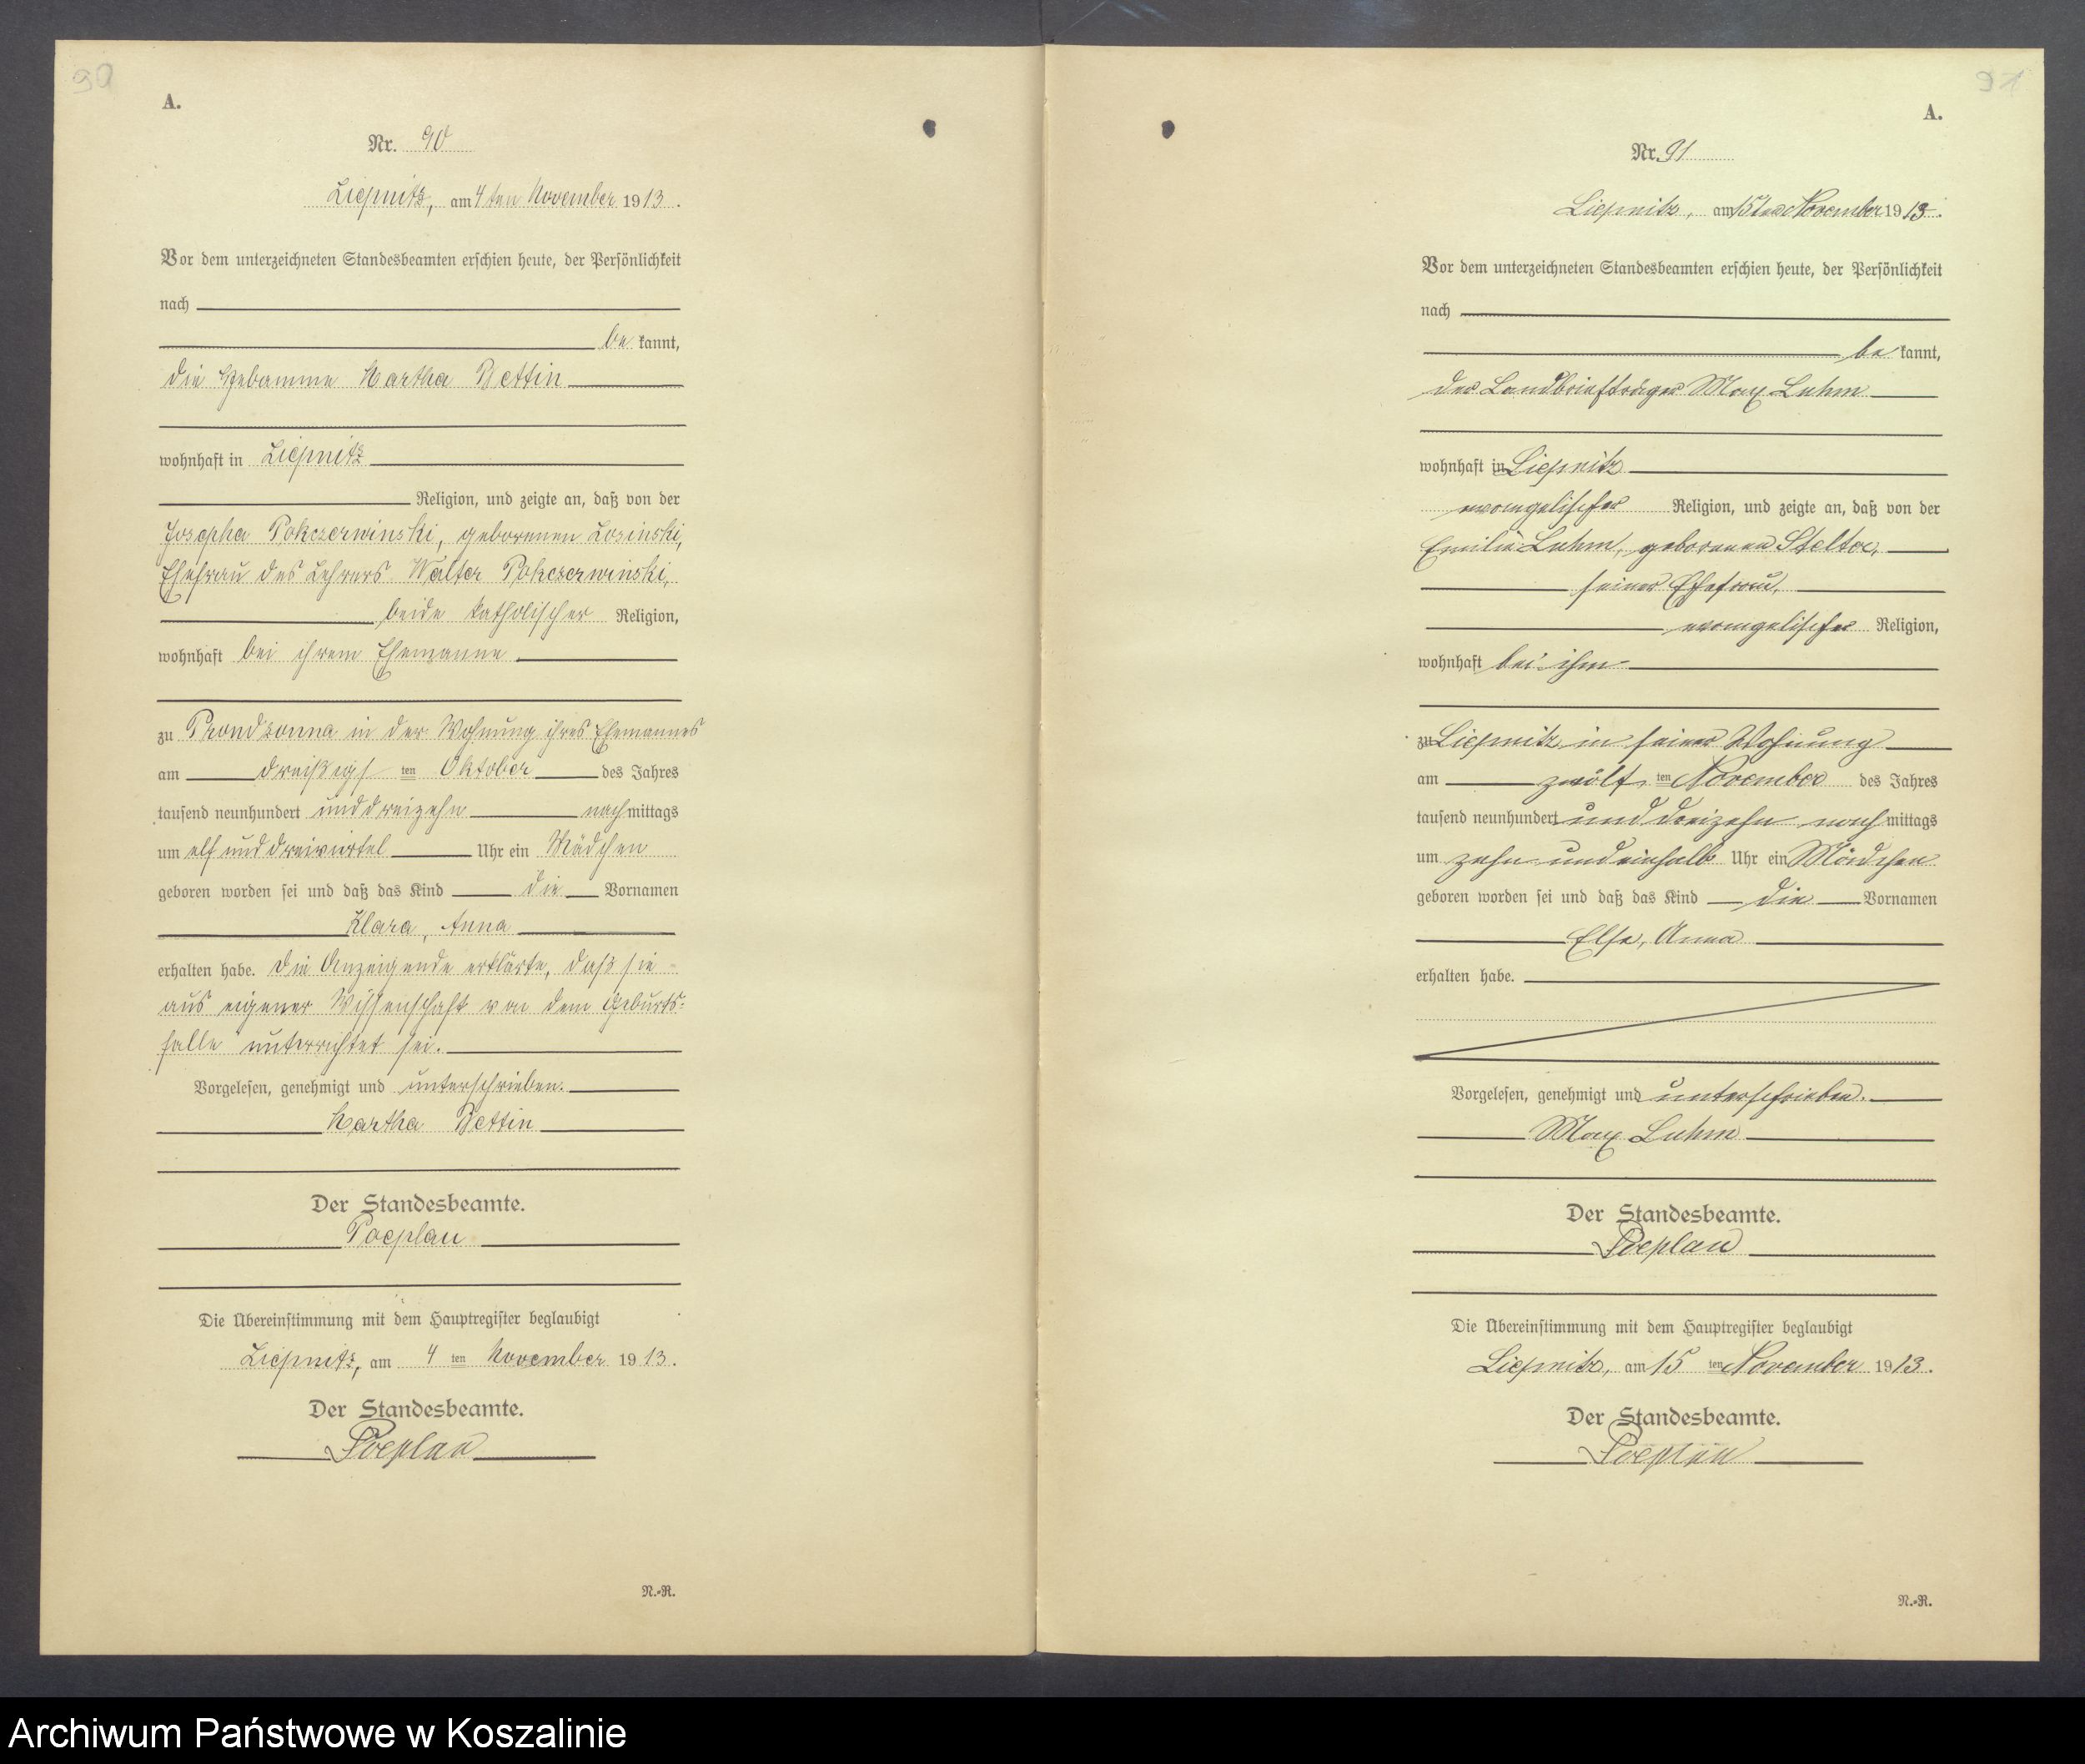 90
A.
Nr. 90
Liepnitz, am 4ten November 1913.
Vor dem unterzeichneten Standesbeamten erschien heute, der Persönlichkeit
nach
be kannt,
die Hebamme Martha Bettin
wohnhaft in Liepnitz
Religion, und zeigte an, daß von der
Josepha Pokczerwinski, geborenen Losinski,
Ehefrau des Lehrers Walter Pokczerwinski,
beide katholischer Religion,
wohnhaft bei ihrem Ehemanne
zu Prondzonna in der Wohnung ihres Ehemannes
am dreißigsten Oktober des Jahres
tausend neunhundert und dreizehn nachmittags
um elf und dreiviertel Uhr ein Mädchen
geboren worden sei und daß das Kind die Vornamen
Klara, Anna
erhalten habe. Die Anzeigende erklärte, daß sie
aus eigener Wissenschaft von dem Geburts-
falle unterrichtet sei.
Vorgelesen, genehmigt und unterschrieben.
Martha Bettin
Der Standesbeamte.
Poeplau
Die Übereinstimmung mit dem Hauptregister beglaubigt
Liepnitz, am 4 ten November 1913.
Der Standesbeamte.
Poeplau
N.-R.
91
A.
Nr. 91
Liepnitz, am 15ten November 1913.
Vor dem unterzeichneten Standesbeamten erschien heute, der Persönlichkeit
nach
be kannt,
der Landbriefträger Max Luhm
wohnhaft in Liepnitz
evangelischer Religion, und zeigte an, daß von der
Emilie Luhm, geborenen Stelter,
seiner Ehefrau,
evangelischer Religion,
wohnhaft bei ihm
zu Liepnitz in seiner Wohnung
am zwölften November des Jahres
tausend neunhundert und dreizehn nachmittags
um zehn und einhalb Uhr ein Mädchen
geboren worden sei und daß das Kind die Vornamen
Else, Anna
erhalten habe.
Vorgelesen, genehmigt und unterschrieben.
Max Luhm
Der Standesbeamte.
Poeplau
Die Übereinstimmung mit dem Hauptregister beglaubigt
Liepnitz, am 15 ten November 1913.
Der Standesbeamte.
Poeplau
N.-R.
Archiwum Państwowe w Koszalinie